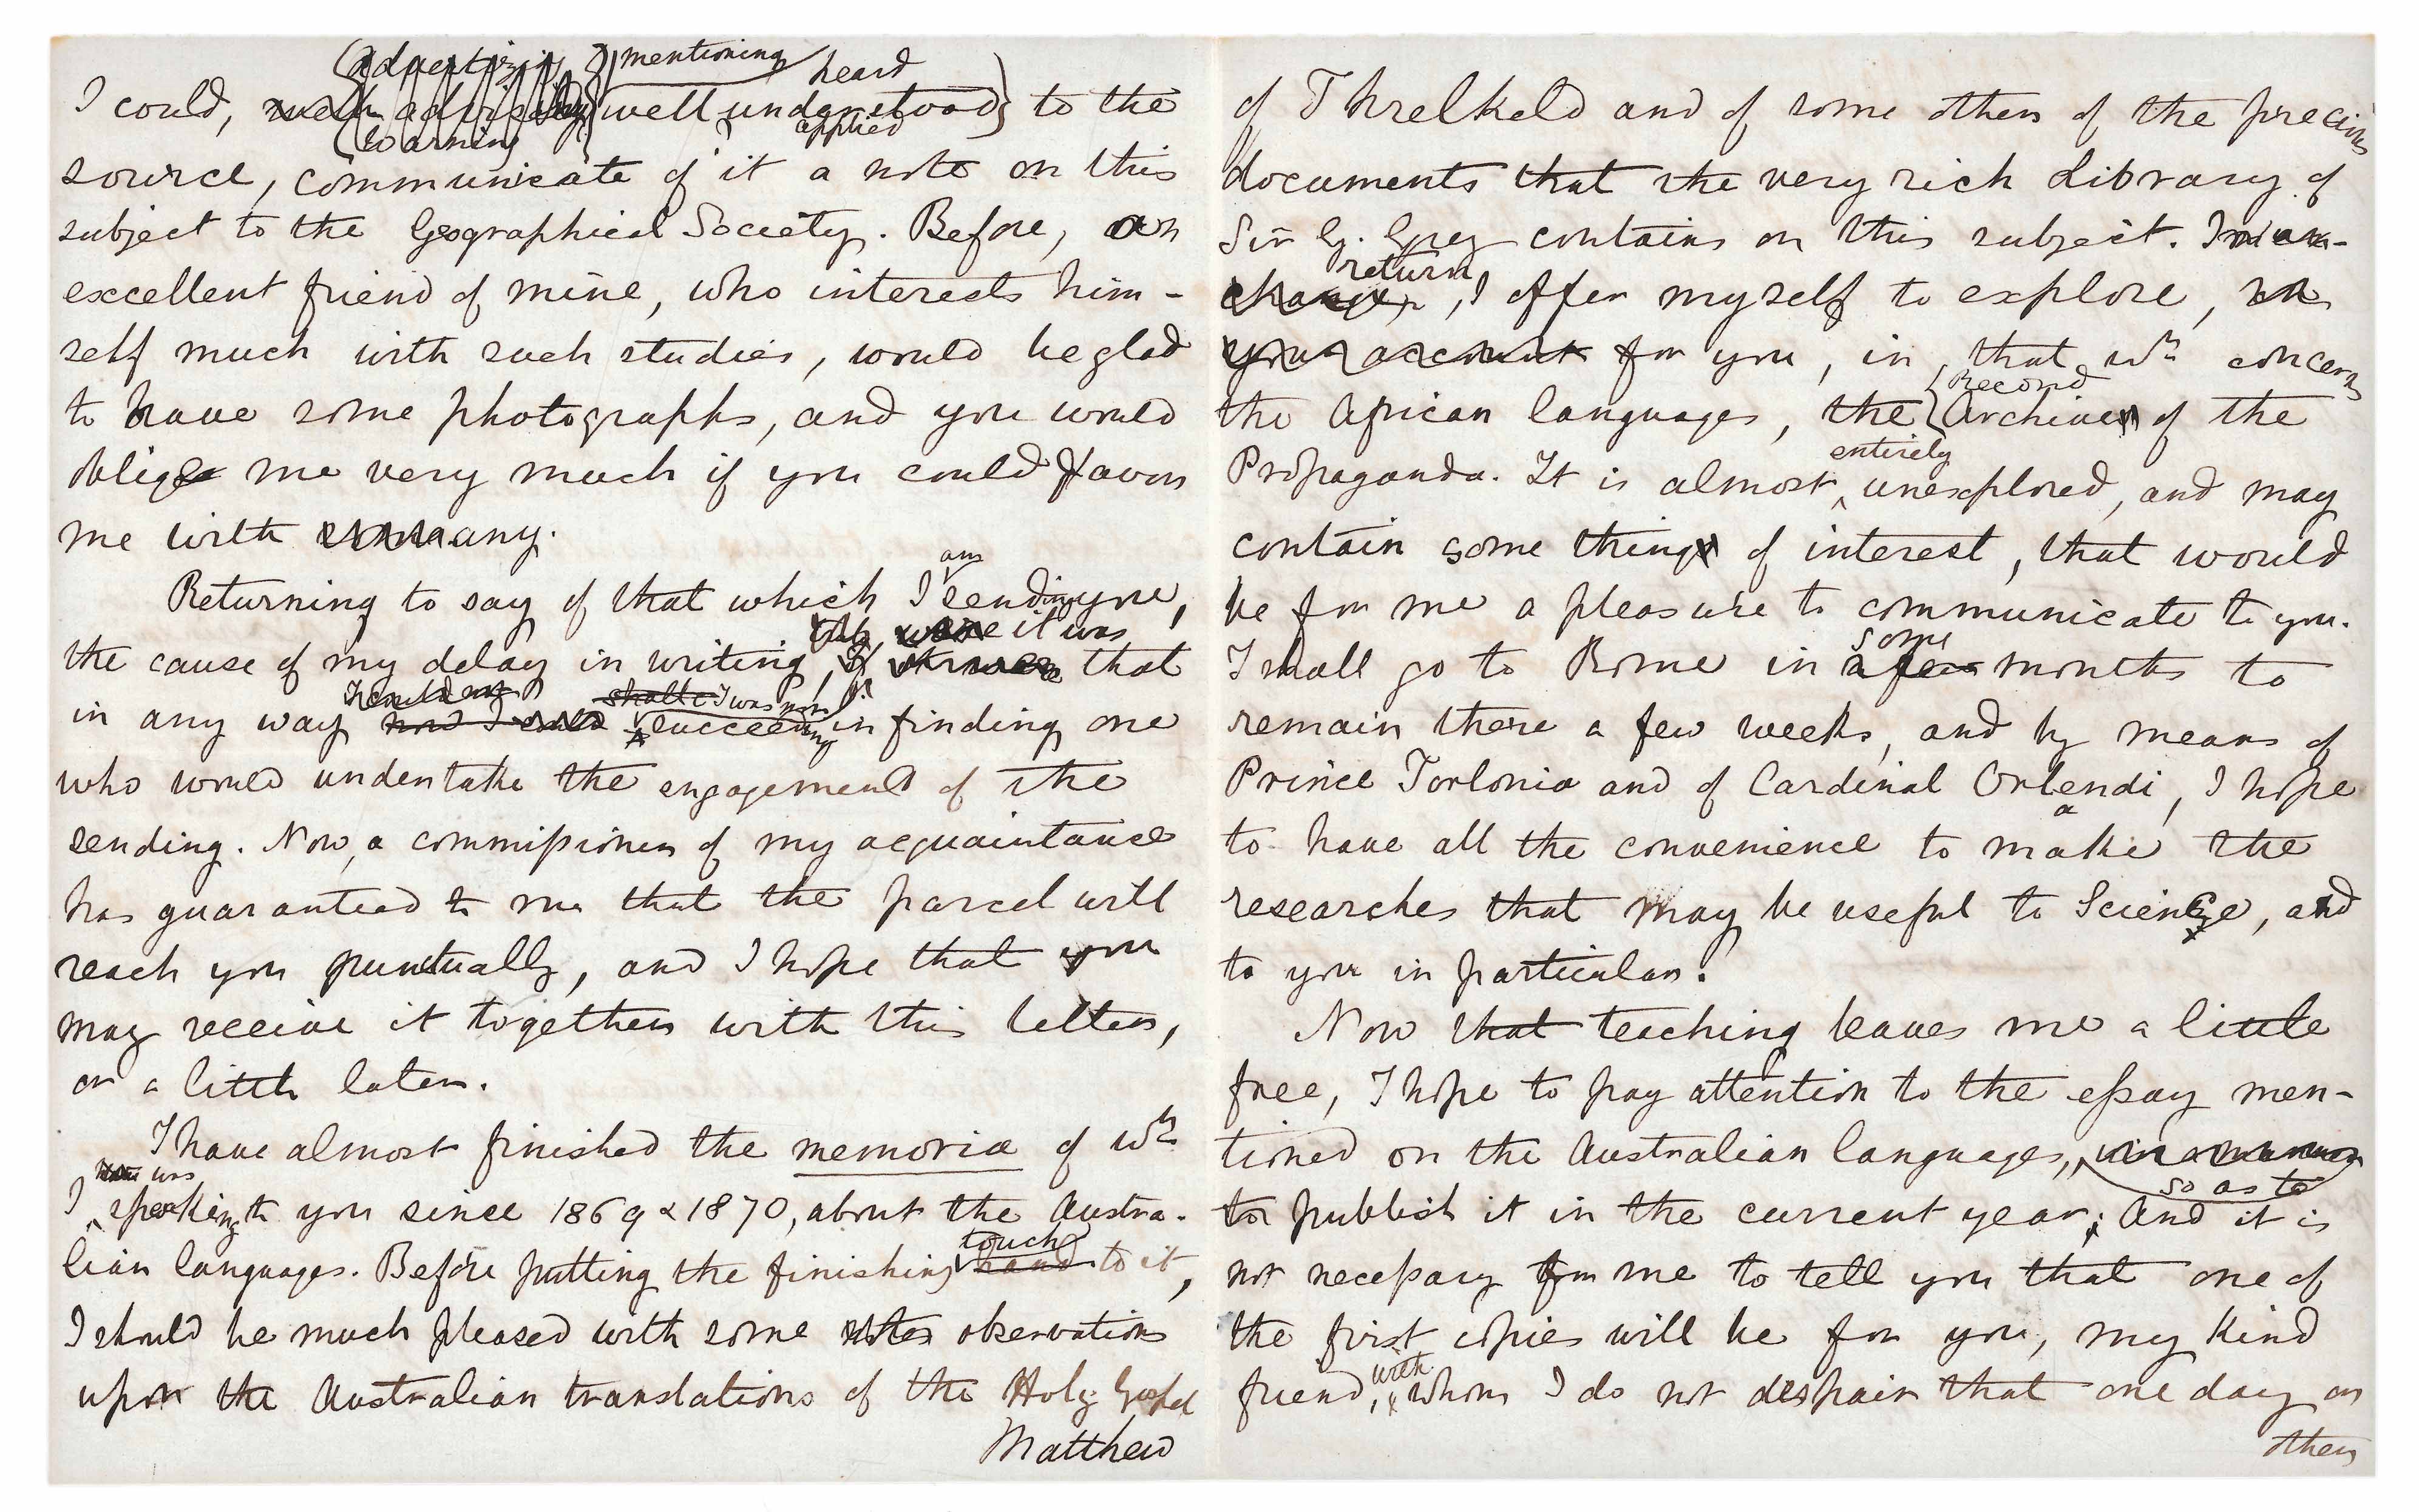 (advertizing mentioning heard
I could, well understood) to the
(warning applied
source, communicate of it a note on this
subject to the Geographical Society. Before, an
excellent friend of mine, who interests him-
self much with such studies, would be glad
to have some photographs, and you would
oblige me very much if you could favor
me with any.
am
Returning to say of that which I sending you,
it was
the cause of my delay in writing, that
shall I was not
in any way succeeding in finding one
who would undertake the engagement of the
sending. Now, a commissioner of my acquaintance
has guaranteed to me that the parcel will
reach you punctually, and I hope that you
may receive it together with this letter,
or a little later.
I have almost finished the memoria of wh
was
I speaking to you since 1869 & 1870, about the Austra-
touch
lian languages. Before putting the finishing hand to it,
I should be much pleased with some notes observations
upon the Australian translations of the Holy Gospel
Matthew
of Threlkeld and of some others of the precious
documents that the very rich Library of
Sir G. Grey contains on this subject. In ex-
return
change, I offer myself to explore, on
your account for you, in that wh concerns
Record
the African languages, the Archives of the
entirely
Propaganda. It is almost unexplored, and may
contain some things of interest, that would
be for me a pleasure to communicate to you.
some
I shall go to Rome in a few months to
remain there a few weeks, and by means of
Prince Torlonia and of Cardinal Orlendi, I hope
a
to have all the convenience to make the
researches that may be useful to Science, and
to you in particular.
Now that teaching leaves me a little
free, I hope to pay attention to the essay men-
tioned on the Australian languages, in a manner
so as to
to publish it in the current year; And it is
not necessary for me to tell you that one of
the first copies will be for you, my kind
with
friend, whom I do not despair that one day or
other